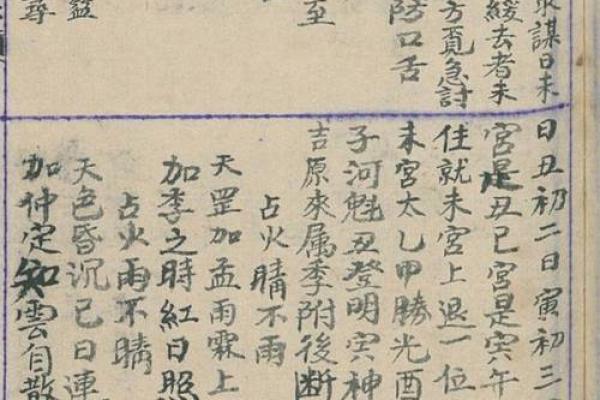 謀日未
緩去者未
方覓急討
防口舌
至
尋
日丑初二日寅初三
宮是丑巳宮是寅年
住就未宮上退一位
未宮太乙甲勝光酉
子河魁丑登明寅神
吉原來属季附後断
占火晴不雨
天罡加孟雨霖上
加季之時紅日照
占火雨不晴
天色昏沉已日連
加仲定知雲自散